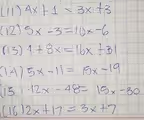 (11) 4x+1 = 3x+3
(12) 5x-3=10x-6
(13) 1+8x=16x+31
(14) 5x-11=15x-19
(15) -12x-48=15x-30
(16) 12x+17=3x+7